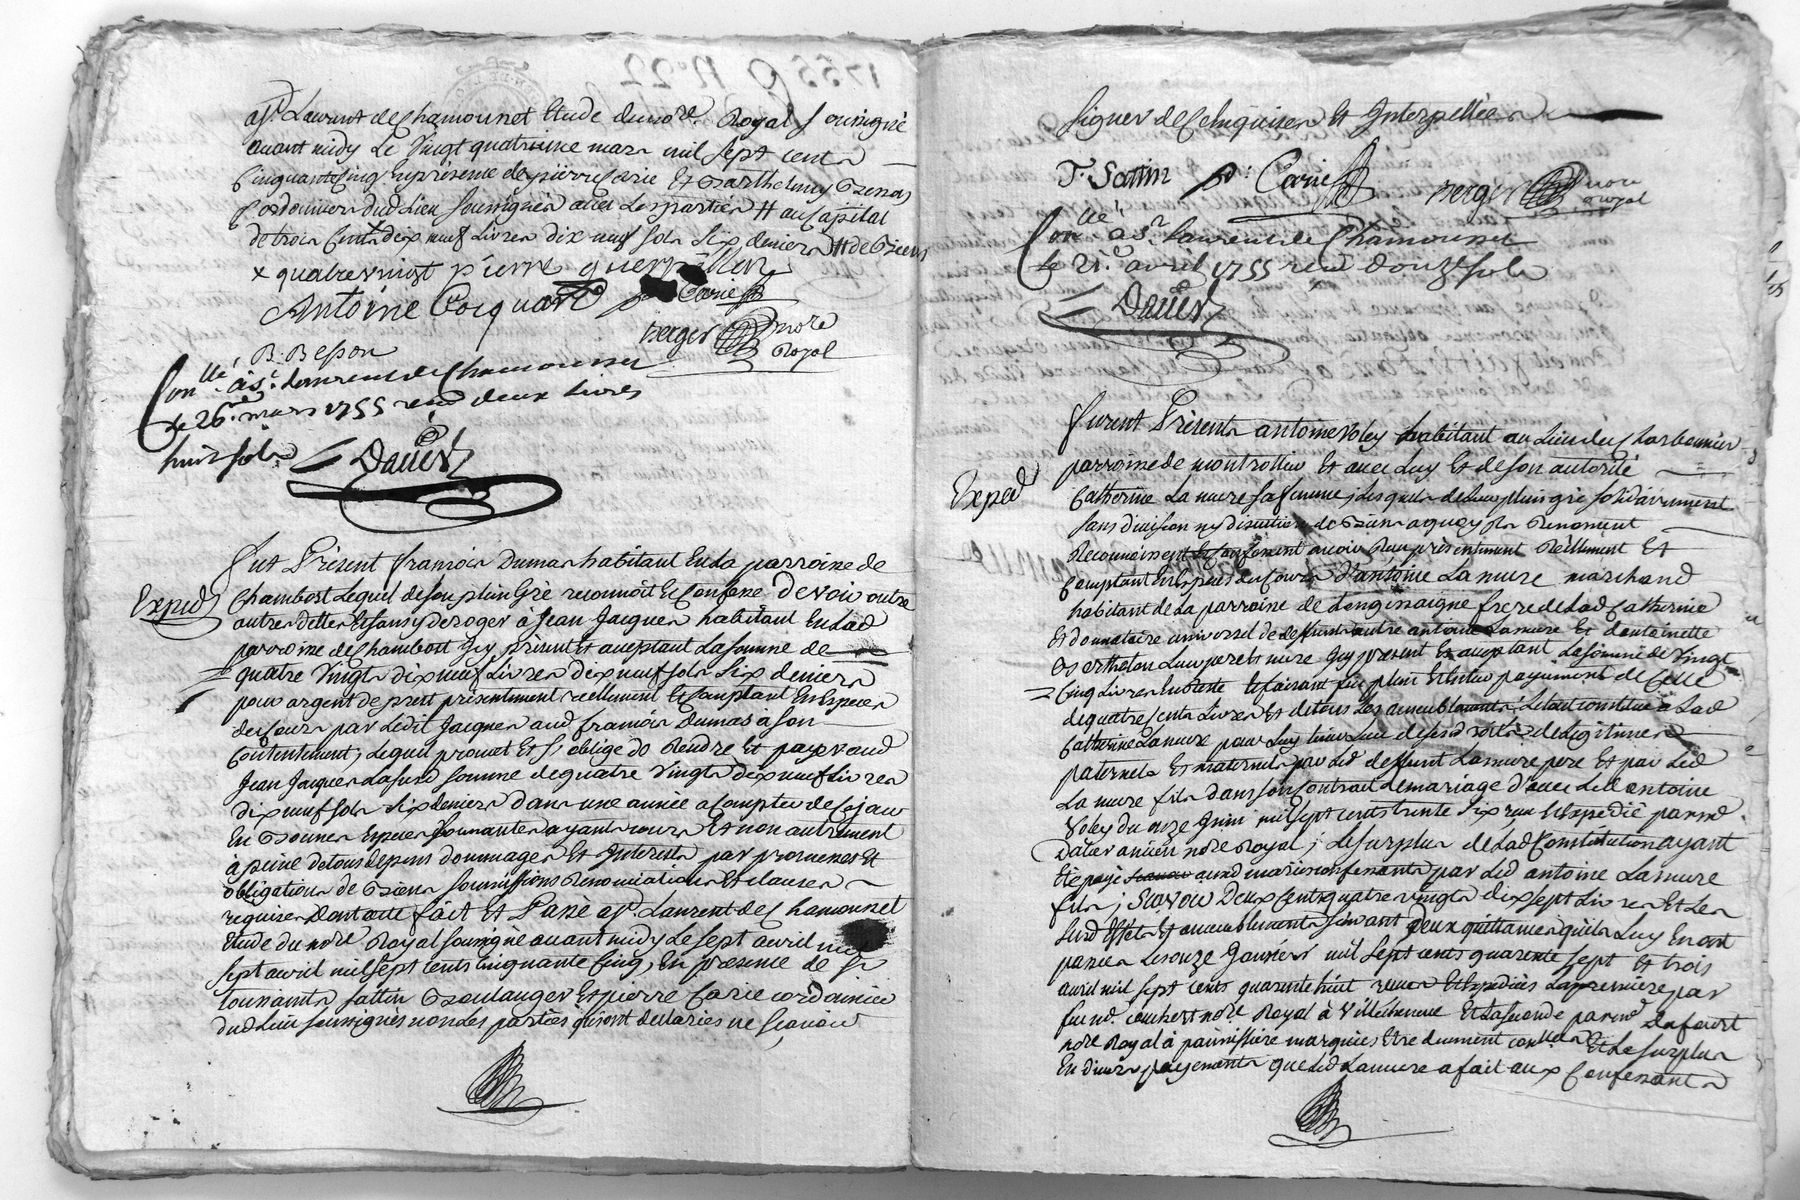 à St Laurent de Chamousset Etude du no.re Royal soussigné
avant midy Le Vingt quatrieme mars mil sept cents
Cinquante Cinq En présence de pierre Carie Et Barthelemy
Cordonniers dud Lieu soussignés avec Les parties # au Capital
de trois Cents dix neuf Livres dix neuf sols six deniers # de Biens
x quatre vingt pierre
Antoine Cocquard Carie
Berger no.re
Royal
B: Besson
Con.llé à St. Laurent de Chamousset
Le 26.e mars 1755 reçu deux Livres
huit sols
Dauer
Fut Présent francois Dumas habitant En La parroisse de
Exped
Chambost Lequel de son plein Gré reconnoit Et Confesse Devoir outre
autres dettes Et sans y deroger à Jean Jacques habitant En Lad
parroisse de Chambost Icy présent Et aceptant La somme de
quatre Vingts dix neuf Livres dix neuf sols six deniers
pour argent de prest présentement reellement Et Comptant En Especes
de Cours par Ledit Jacques aud francois Dumas à son
Contentement; Lequel promet Et s'oblige de Rendre Et payer aud
Jean Jacques Lasusd somme de quatre Vingts dix neuf Livres
dix neuf sols six deniers dans une année a Compter de Cejour
En Bonnes Especes sonnantes ayant cours Et non autrement
à peine de tous depens dommages Et Interests par promesses Et
obligations de Biens soumissions Renonciations Et clauses
requises Dont acte fait Et Passé à St. Laurent de Chamousset
Etude du no.re Royal soussigné avant midy Le sept avril mil
sept avril mil sept cents Cinquante Cinq, En présence de Sr
toussaints sattin Boulanger Et pierre Carie cordonnier
dud Lieu soussignés non Les parties qui ont declarées ne sçavoir
signer de Ce Enquises Et Interpellées
T. Sattin Carie Berger no.re
Royal
Con.llé à St. Laurent de Chamousset
Le 21.e avril 1755 reçu douze sols
Dauer
Furent Présents antoine Voley habitant au Lieu du Charbonnier
parroisse de montrottier Et avec Luy Et de son autorité
Exped
Catherine La mure sa femme; Lesquels de Leur plein gré solidairement
sans division ny discution de Biens a quoy ils Renoncent
Reconnoissent Et Confessent avoir Reçu présentement Réellement Et
Comptant En Especes de Cours D'antoine La mure marchand
habitant de La parroisse de Longessaigne frere de Lad Catherine
Et donnataire universel de deffunt autre antoine Lamure Et d'antoinette
Bertholon Leurs pere Et mere Icy present Et aceptant La somme de Vingt
Cinq Livres En reste Et faisant fin plein Et Entier payement de Celle
de quatre cents Livres Et de tous Les ameublements; Letout constitué a Lad
Catherine La mure pour Luy tenir Lieu de ses droits de Légitimes
paternels Et maternels par Led deffunt Lamure pere Et par Led
La mure fils dans son Contrat de mariage d'avec Led antoine
Voley du onze Juin mil sept cents trente six reçu Et Expedié par me
Dauer ancien no.re Royal; Lesurplus de Lad Constitution ayant
Eté payé aux d mariés confessants par Led antoine Lamure
fils; Scavoir Deux cents quatre vingts dix sept Livres Et Les
susd Effets Et ameublements suivant Deux quittances qu'ils Luy En ont
passés Les onze Janvier mil sept cents quarente sept Et trois
avril mil sept cents quarente huit reçues Et Expediées La premiere par
feu me. no.re Royal à Villechenève Et La seconde par me Dufourt
no.re Royal à pannissiere Etre duement con.llées Et Le surplus
En divers payements que Led Lamure a fait aux Confessants